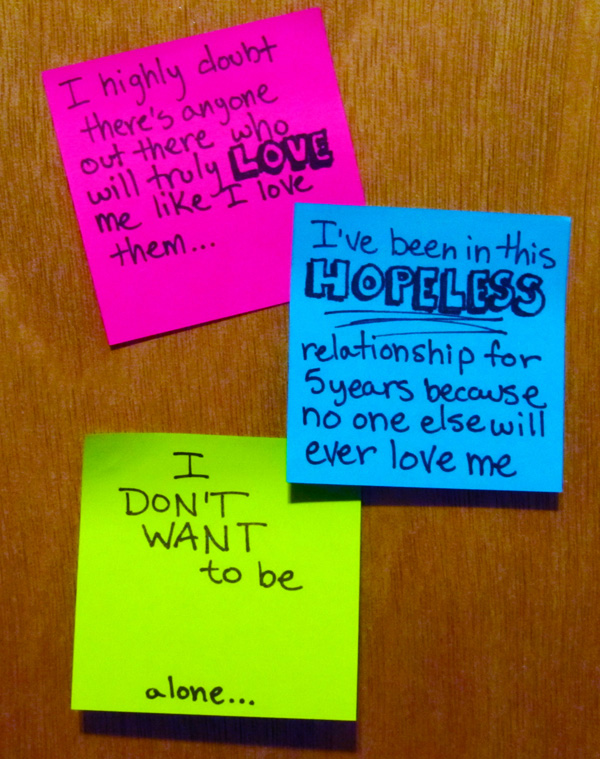 I highly doubt
there's anyone
out there who
will truly LOVE
me like I love
them...
I've been in this
HOPELESS
relationship for
5 years because
no one else will
ever love me
I
DON'T
WANT
to be
alone...